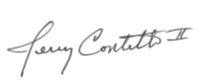 Jerry Contetto II